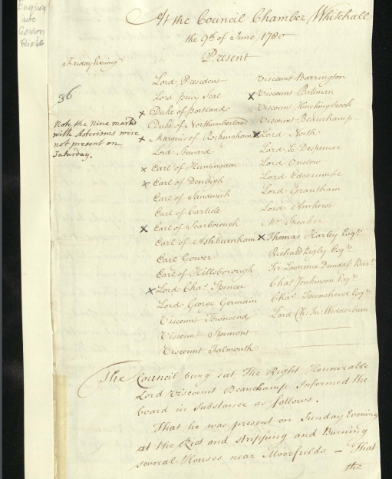 At the Council Chamber, Whitehall
the 9th of June 1780
Present
Friday Evening
36
Note the Nine marked
with Asterisms were
not present on
Saturday.
Lord President
Lord Privy Seal
x Duke of Portland
Duke of Northumberland
x Marquis of Rockingham
Lord Steward
x Earl of Huntingdon
x Earl of Denbigh
Earl of Sandwich
Earl of Carlisle
x Earl of Scarborough
Earl of Ashburnham
Earl Gower
Earl of Hillsborough
x Lord Chas. Spencer
Lord George Germain
Viscount Townsend
Viscount Stormont
Viscount Falmouth
Viscount Barrington
x Viscount
Viscount Hinchingbrook
Viscount Beauchamp
x Lord North
Lord Le Despencer
Lord Onslow
Lord Edgcumbe
Lord Grantham
Lord Amherst
Mr Speaker
x Thomas Harley Esqr.
Richard Rigby Esqr.
Sr Lawrence Dundas Bart.
Chas Jenkinson Esqr.
Chas. Townshend Esqr.
Lord Ch. Ju. Wedderburn
The Council being sat the Right Honourable
Lord Viscount Beauchamp Informed the
board in Substance as follows.
That he was present on Sunday Evening
at the Riot and stripping and Burning
several Houses near Moorfields — That
the